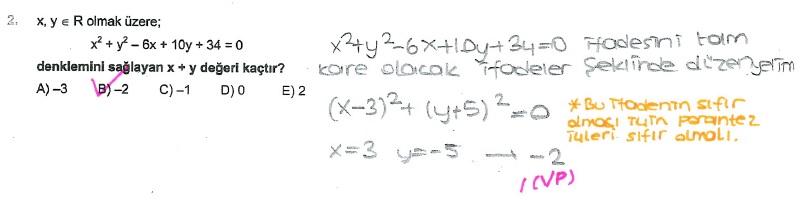 2. x, y ∈ R olmak üzere;
x² + y² – 6x + 10y + 34 = 0
denklemini sağlayan x + y değeri kaçtır?
A) –3 B) –2 C) –1 D) 0 E) 2
x²+y²-6x+10y+34=0 ifadesini tam
kare olacak ifadeler şeklinde düzenleyelim
(x-3)²+(y+5)²=0
x=3 y=-5 → -2
1 (VP)
*Bu ifadenin sıfır
olması için parantez
içleri sıfır olmalı.